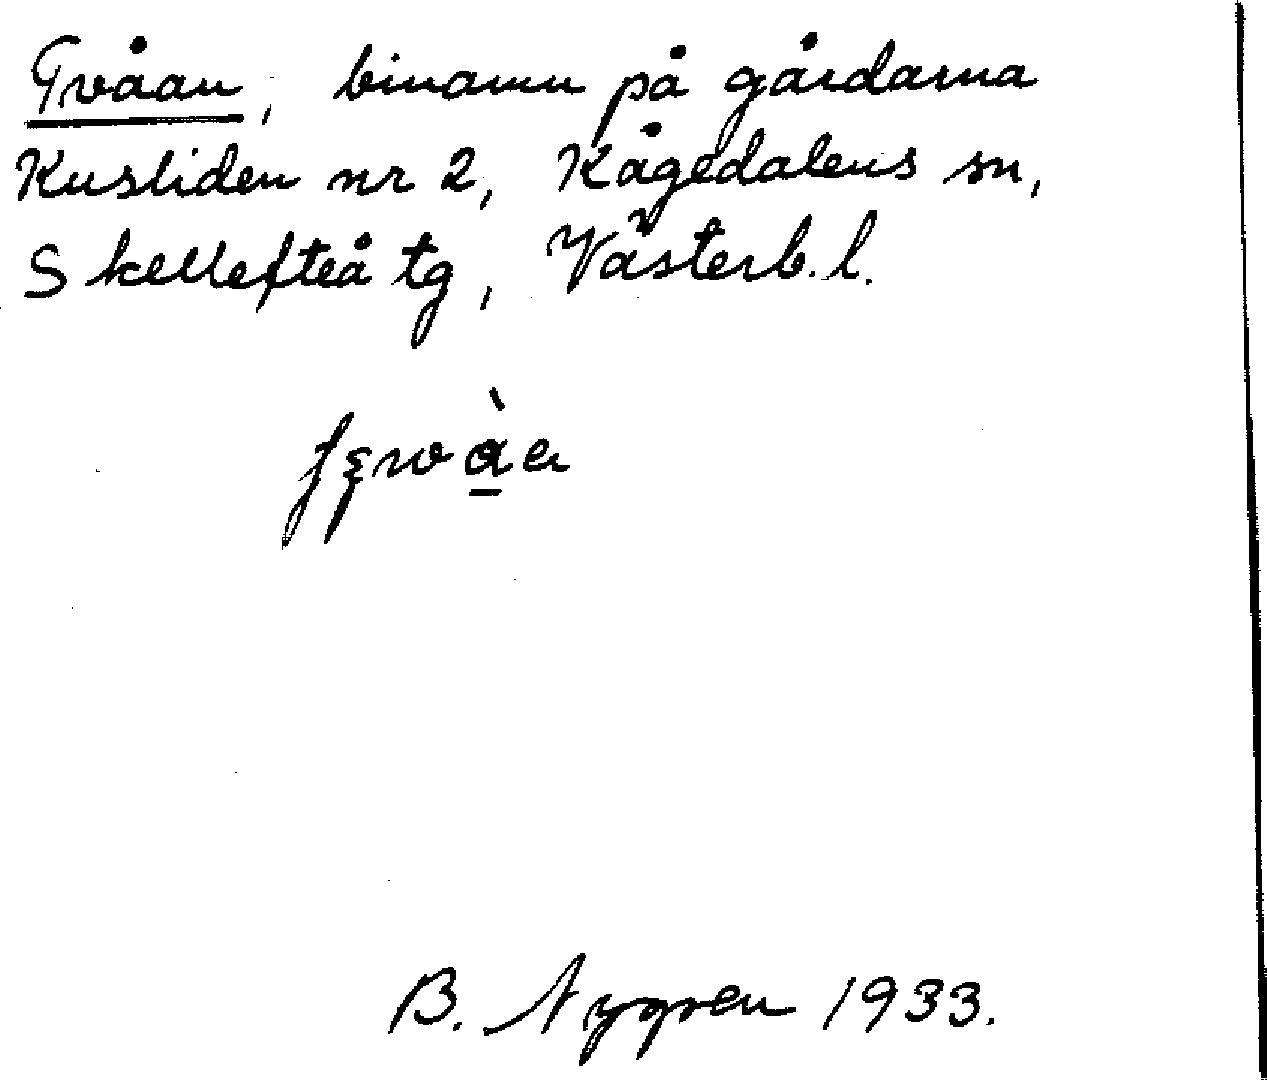 Tvåan, binamn på gårdarna
Kusliden nr 2, Kågedalens sn,
Skellefteå tg, Västerb. l.
B. Nygren 1933.